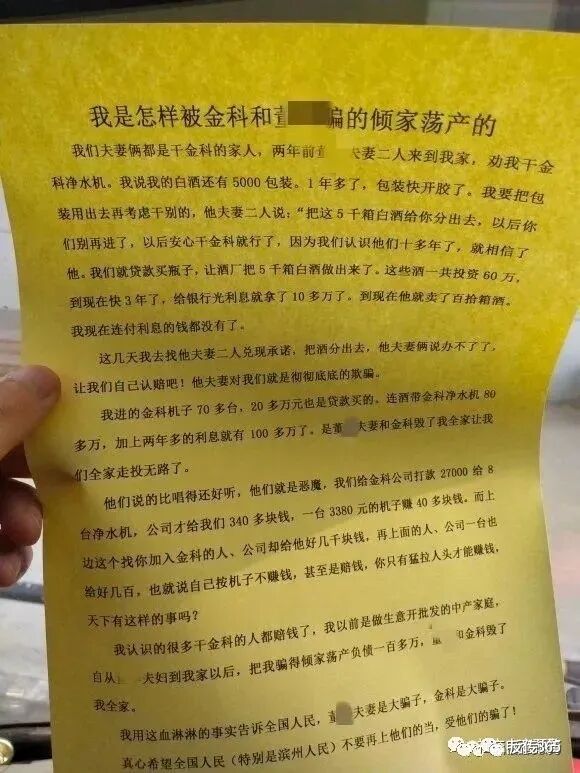 我是怎样被金科和董 骗的倾家荡产的
我们夫妻俩都是干金科的家人，两年前 夫妻二人来到我家，劝我干金
科净水机。我说我的白酒还有 5000 包装。1 年多了，包装快开胶了。我要把包
装用出去再考虑干别的，他夫妻二人说：“把这 5 千箱白酒给你分出去，以后你
们别再进了，以后安心干金科就行了，因为我们认识他们十多年了，就相信了
他。我们就贷款买瓶子，让酒厂把 5 千箱白酒做出来了。这些酒一共投资 60 万，
到现在快 3 年了，给银行光利息就拿了 10 多万了。到现在他就卖了百拾箱酒。
我现在连付利息的钱都没有了。
这几天我去找他夫妻二人兑现承诺，把酒分出去，他夫妻俩说办不了了，
让我们自己认赔吧！他夫妻对我们就是彻彻底底的欺骗。
我进的金科机子 70 多台，20 多万元也是贷款买的。连酒带金科净水机 80
多万，加上两年多的利息就有 100 多万了。是董 夫妻和金科毁了我全家让我
们全家走投无路了。
他们说的比唱得还好听，他们就是恶魔，我们给金科公司打款 27000 给 8
台净水机，公司才给我们 340 多块钱，一台 3380 元的机子赚 40 多块钱。而上
边这个找你加入金科的人、公司却给他好几千块钱，再上面的人、公司一台也
给好几百，也就说自己按机子不赚钱，甚至是赔钱，你只有猛拉人头才能赚钱，
天下有这样的事吗？
我认识的很多干金科的人都赔钱了，我以前是做生意开批发的中产家庭，
自从 夫妇到我家以后，把我骗得倾家荡产负债一百多万， 和金科毁了
我全家。
我用这血淋淋的事实告诉全国人民，董 夫妻是大骗子，金科是大骗子。
真心希望全国人民（特别是滨州人民）不要再上他们的当，受他们的骗了！
反传365